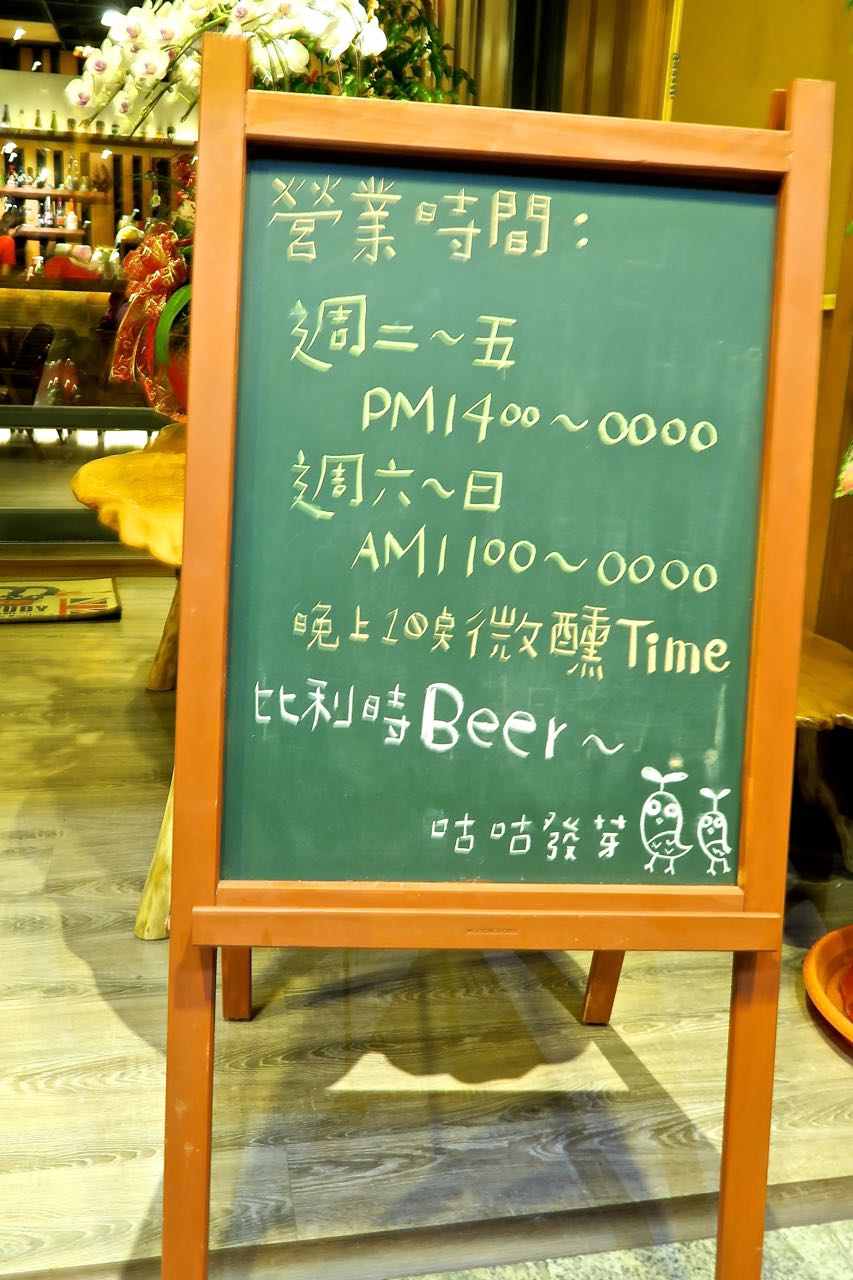 營業時間：
週二～五
PM1400～0000
週六～日
AM1100～0000
晚上10桌微醺Time
比利時Beer～
咕咕發芽